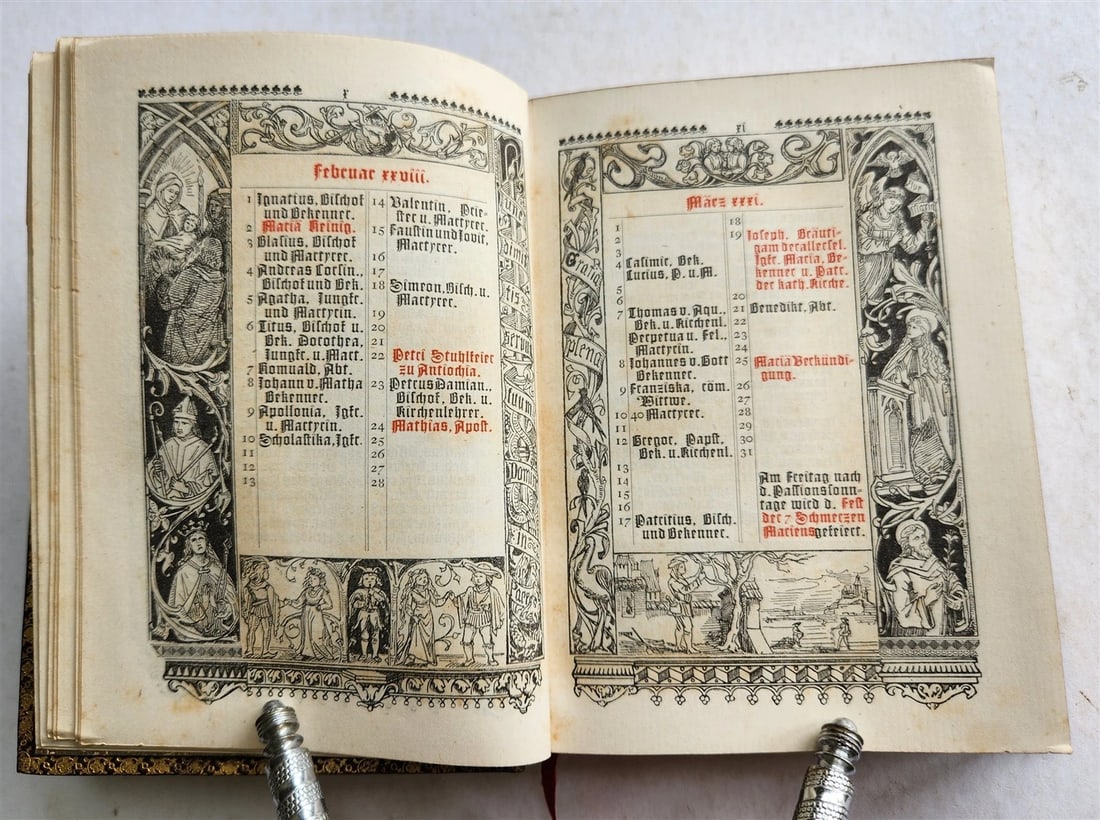 x
Februar xxviii.
1 Ignatius, Bischof
und Bekenner.
2 Maria Reinig.
3 Blasius, Bischof
und Martyrer.
4 Andreas Corsin.,
Bischof und Bek.
5 Agatha, Jungfr.
und Martyrin.
6 Titus, Bischof u.
Bek. Dorothea,
Jungfr. u. Mart.
7 Romuald, Abt.
8 Johann v. Matha
Bekenner.
9 Apollonia, Jgfr.
u. Martyrin.
10 Scholastika, Jgfr.
11
12
13
14 Valentin, Prie-
ster u. Martyrer.
15 Faustin und Jovit,
Martyrer.
16
17
18 Simeon, Bisch. u.
Martyrer.
19
20
21
22 Petri Stuhlfeier
zu Antiochia.
23 Petrus Damian.,
Bischof, Bek. u.
Kirchenlehrer.
24 Mathias, Apost.
25
26
27
28
Nunc
dimit
tis
servum
tuum
Domine
In
Pace
xi
März xxxi.
1
2
3
4 Casimir, Bek.
Lucius, P. u. M.
5
6
7 Thomas v. Aqu.,
Bek. u. Kirchenl.
Perpetua u. Fel.,
Martyrin.
8 Johannes v. Gott
Bekenner.
9 Franziska, röm.
Wittwe.
10 40 Martyrer.
11
12 Gregor, Papst,
Bek. u. Kirchenl.
13
14
15
16
17 Patritius, Bisch.
und Bekenner.
18
19 Joseph, Bräuti-
gam der allersel.
Jgfr. Maria, Be-
kenner u. Patr.
der kath. Kirche.
20
21 Benedikt, Abt.
22
23
24
25 Mariä Verkündi-
gung.
26
27
28
29
30
31
Am Freitag nach
d. Passionssonn-
tage wird d. Fest
der 7 Schmerzen
Mariens gefeiert.
Ave
Maria
Gratia
plena